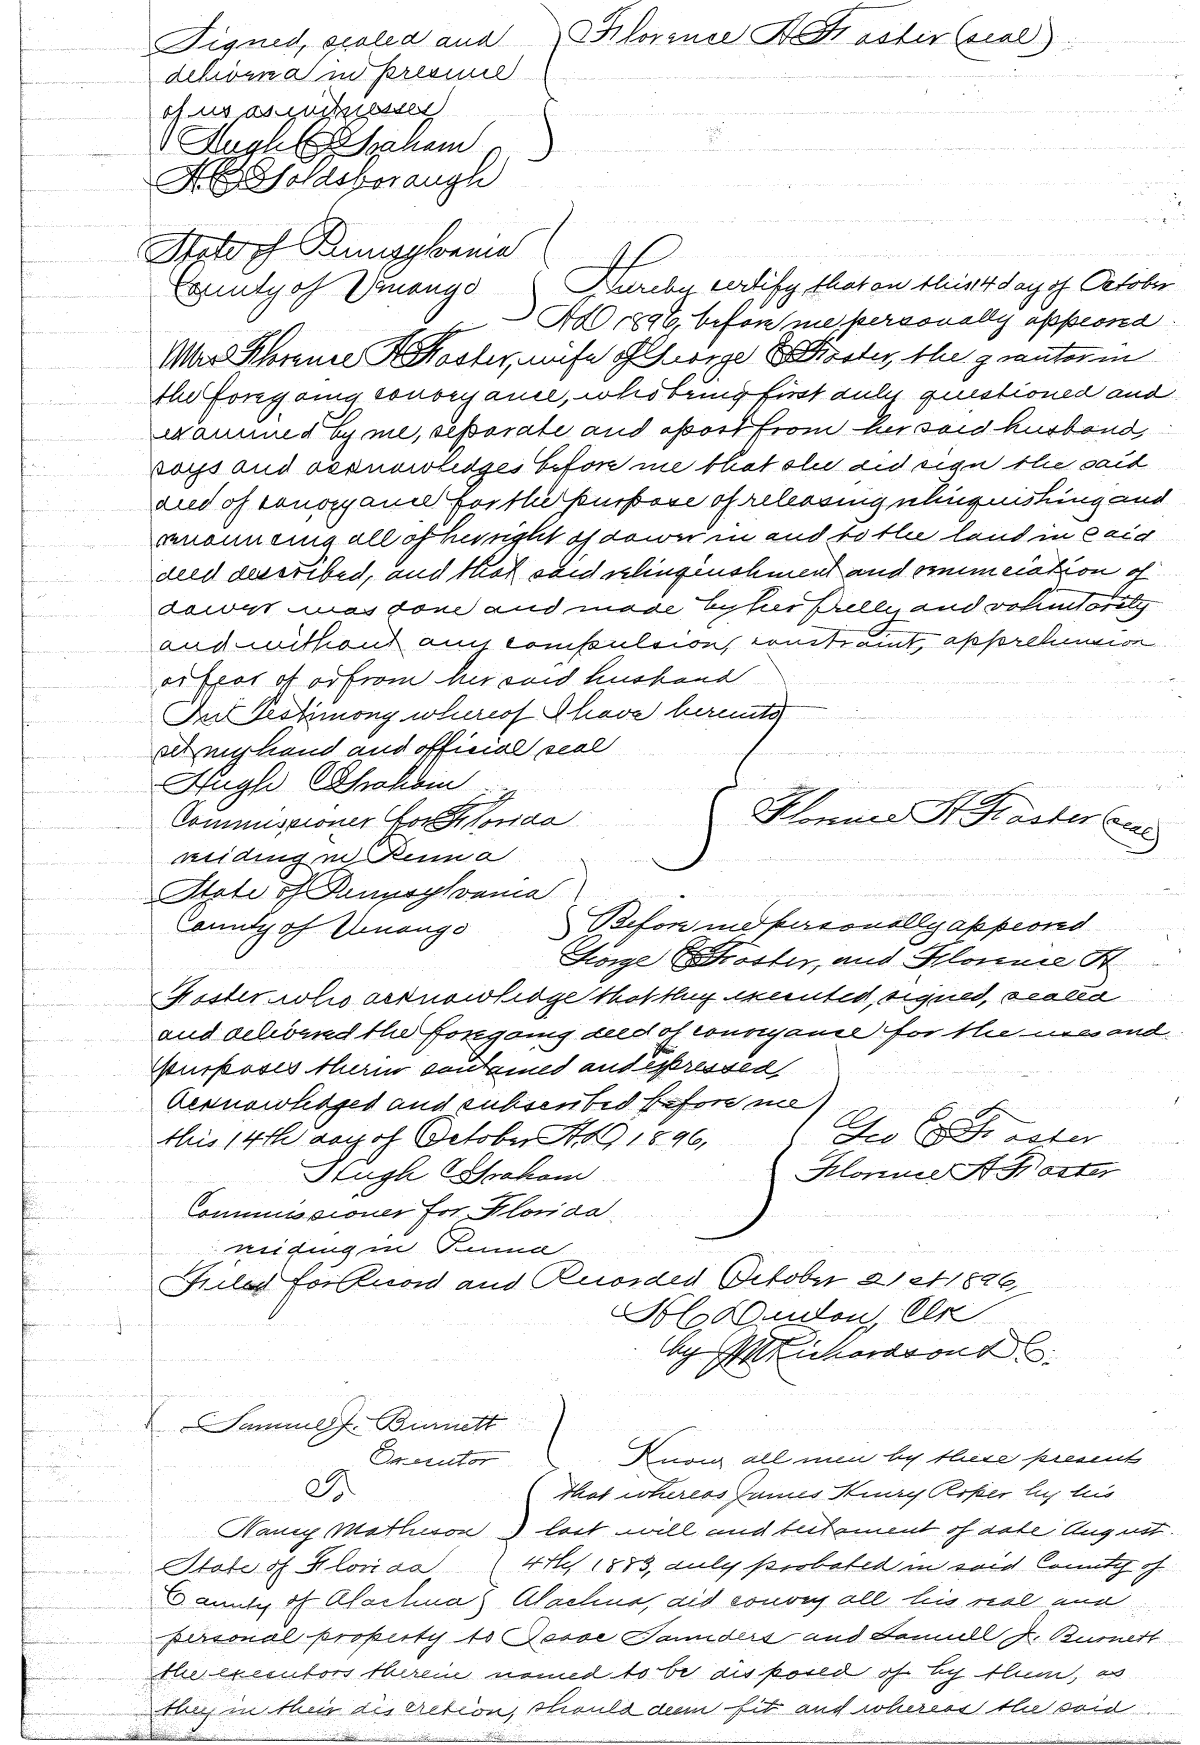 Signed, sealed and } Florence A Foster (seal)
delivered in presence
of us as witnesses
Hugh C Graham
A. C. Goldsborough
State of Pennsylvania
County of Venango } I hereby certify that on this 14 day of October
A D 1896, before me personally appeared
Mrs Florence A Foster, wife of George E Foster, the grantor in
the foregoing conveyance, who being first duly questioned and
examined by me, separate and apart from her said husband,
says and acknowledges before me that she did sign the said
deed of conveyance for the purpose of releasing relinquishing and
renouncing all of her right of dower in and to the land in said
deed described, and that said relinquishment and renunciation of
dower was done and made by her freely and voluntarily
and without any compulsion, constraint, apprehension
or fear of or from her said husband
In Testimony whereof I have hereunto
set my hand and official seal
Hugh C Graham
Commissioner for Florida } Florence A Foster (seal)
residing in Penna
State of Pennsylvania
County of Venango } Before me personally appeared
George E Foster, and Florence A
Foster who acknowledge that they executed, signed, sealed
and delivered the foregoing deed of conveyance for the uses and
purposes therein contained and expressed,
Acknowledged and subscribed before me
this 14th day of October A D 1896, } Geo E Foster
Hugh C Graham Florence A Foster
Commissioner for Florida
residing in Penna
Filed for Record and Recorded October 21st 1896,
H C Denton, Clk
by Richardson D. C.
Samuel J. Burnett
Executor } Know all men by these presents
To that whereas James Henry Roper by his
Nancy Matheson } last will and testament of date August
State of Florida } 4th, 1883, duly probated in said County of
County of Alachua } Alachua, did convey all his real and
personal property to Jesse Saunders and Samuel J. Burnett
the executors therein named to be disposed of by them, as
they in their discretion, should deem fit and whereas the said